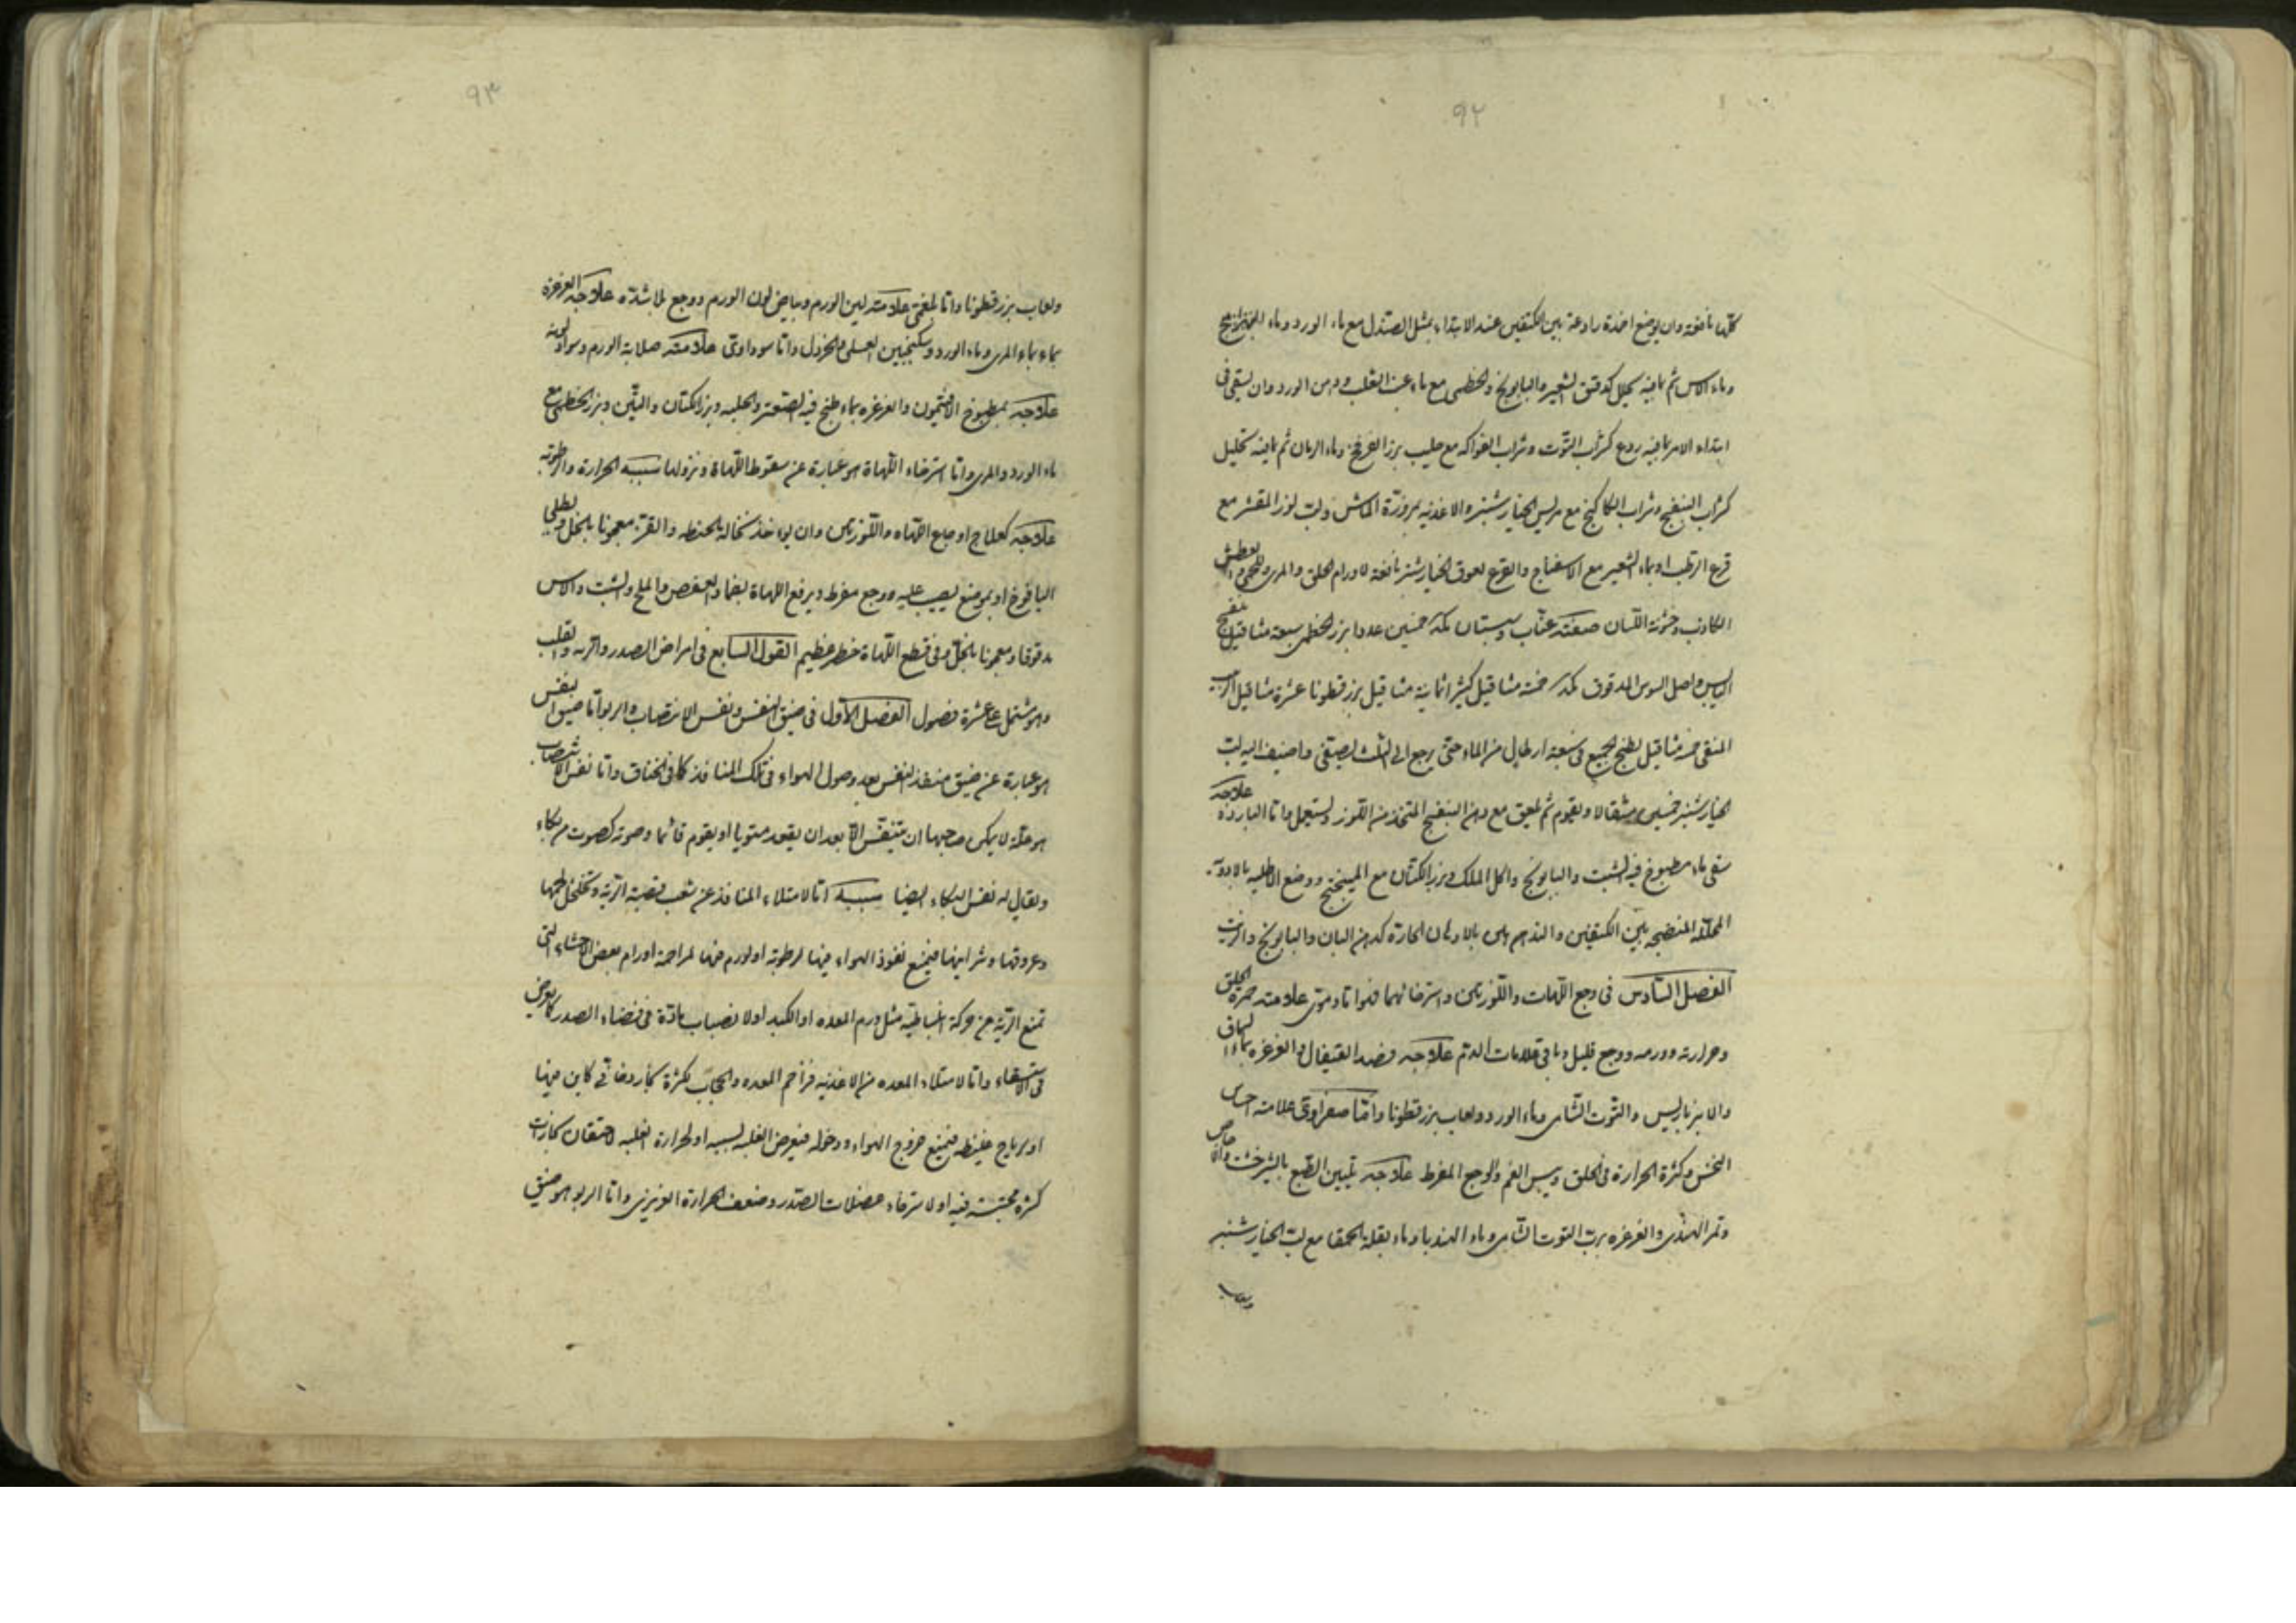 ٩٢
كلها نافعة وان يوضع اضمدة رادعة بين الكتفين عند الابتداء بمثل الصندل مع ماء الورد وماء
وماء الاس ثم بما فيه تحليل كدقيق الشعير والبابونج والخطمى مع ماء عنب الثعلب ودهن الورد وان يسقى فى
ابتداء الامر بما فيه ردع كشراب التوت وشراب الفواكه مع حليب بزر الفرفخ وماء الرمان ثم بما فيه تحليل
كشراب البنفسج وشراب الكاكنج مع مريس الخيار شنبر والاغذيه مزورة الماش ولب لوز المقشر مع
قرع الرطب او بماء الشعير مع الاسفناج والقرع لعوق الخيار شنبر نافعة لاورام الحلق والمرى والعطش
الكاذب وخشونة اللسان صنعته عناب وسپستان خمسين عددا بزر الخطمى سبعة مثاقيل بنفسج
اليابس واصل السوس المدقوق خمسة مثاقيل كثيرا ثمانية مثاقيل بزرقطونا عشرة مثاقيل الزبيب
المنقى خمسة مثاقيل يطبخ الجميع فى سبعة ارطال من الماء حتى يرجع الى الثلث ليصفى واضيف اليه لب
الخيار شنبر خمسين مثقالا ويقوم ثم يلعق مع دهن البنفسج المتخذ من اللوز ويستعمل واما الباردة علاجه
سقى ماء مطبوخ فيه الشبت والبابونج واكل الملك وبزر الكتان مع الميبختج ووضع الاطليه بالادوية
المحللة المنضجه بين الكتفين والتدهين بالادهان الحارة كدهن البان والبابونج والزيت
الفصل السادس فى وجع اللهات واللوزتين واسترخائهما فهو اما دموى علامته حمرة الحلق
وحرارته وورمه ووجع قليل وباقى علامات الدم علاجه فصد القيفال والغرغره بماء السماق
والانبرباريس والتوت الشامى وماء الورد ولعاب بزرقطونا واما صفراوى علامته احساس
النخس وكثرة الحرارة فى الحلق ويبس الفم والوجع المفرط علاجه تليين الطبع بالشيرخشت والاجاص
وتمر الهندى والغرغره برب التوت الشامى وماء الهندبا وماء بقلة الحمقا مع لب الخيار شنبر
ولعاب
٩٣
ولعاب بزرقطونا واما بلغمى علامته لين الورم وبياض لون الورم ووجع بلا شدة علاجه الغرغرة
بماء المرى وماء الورد وسكنجبين العسلى والخردل واما سوداوى علامته صلابة الورم وسواد لونه
علاجه بمطبوخ الافتيمون والغرغره بماء طبخ فيه الصعتر والحلبه وبزر الكتان والتين وبزر الخطمى مع
ماء الورد والمرى واما استرخاء اللهاة هو عبارة عن سقوط اللهاة ونزولها سببه الحرارة والرطوبه
علاجه كعلاج اوجاع اللهاه واللوزتين وان يوخذ نخالة الحنطه والقرع معجونا بالخل ويطلى
اليافوخ او بموضع يصيب عليه ووجع مفرط ويرفع اللهاة بضماد العفص والملح والشبت والاس
مدقوقا ومعجونا بالخل وفى قطع اللهاة خطر عظيم القول السابع فى امراض الصدر والريه والقلب
وهو مشتمل على عشرة فصول الفصل الاول فى ضيق النفس ونفس الانتصاب والربو اما ضيق النفس
هو عبارة عن ضيق منفذ النفس بعد وصول الهواء فى تلك المنافذ كما فى الخناق واما نفس الانتصاب
هو علة لا يمكن صاحبها ان يتنفس الا بعد ان يقعد مستويا او يقوم قائما وصوته كصوت من بكاء
ويقال له نفس البكاء ايضا سببه اما لامتلاء المنافذ عن شعب قصبة الرئة وتخلخل لحمها
وعروقها وشرايينها فيمنع نفوذ الهواء فيها لرطوبه او لورم فيها لمزاحمة اورام بعض الاحشاء التى
تمنع الرئة من حركة انبساطية مثل ورم المعده او الكبد او لانصباب مادة فى فضاء الصدر كما يعرض
فى الاستسقاء واما لامتلاء المعده من الاغذيه فزاحم المعده والحجاب لكثرة بخار دخانى كاين فيها
او برياح غليظه فيمنع خروج الهواء ودخوله فيعرض العله لسببه او لحرارة القلبيه لاحتقان بخارات
كثيره محتبسة فيه او لاسترخاء عضلات الصدر وضعف الحرارة الغريزى واما الربو هو ضيق